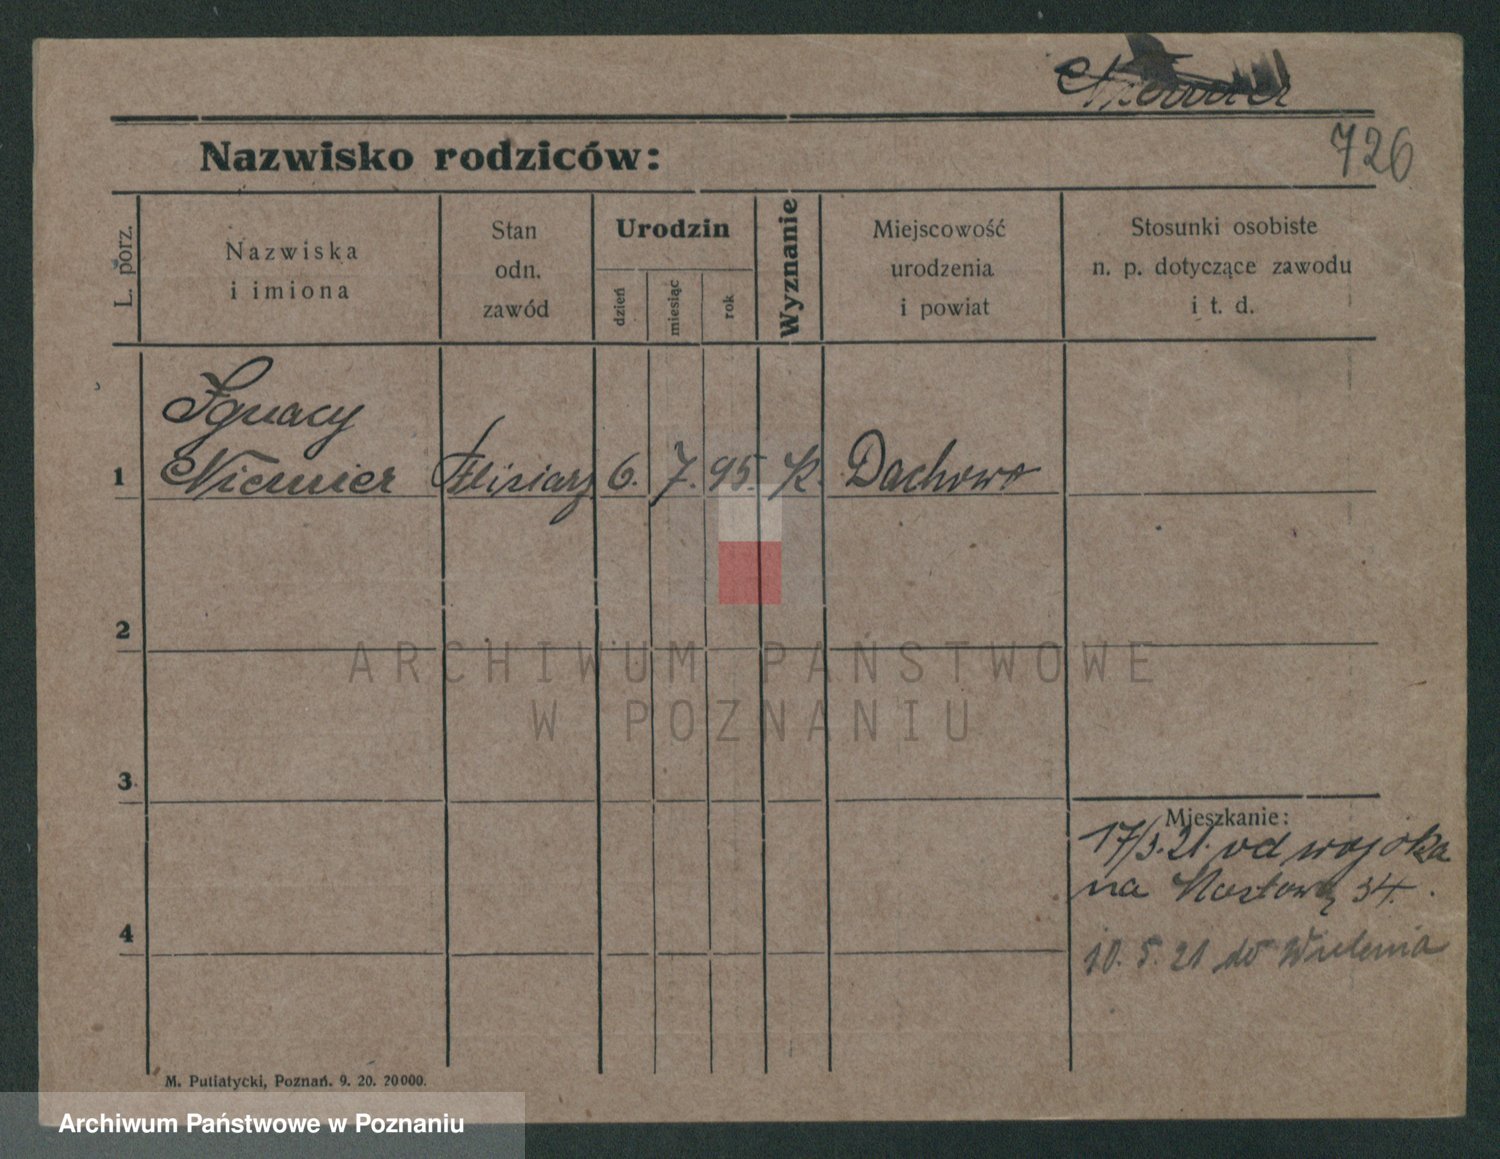 Niemier
726
Nazwisko rodziców:
L. porz.
Nazwiska
i imiona
Stan
odn.
zawód
Urodzin
dzień
miesiąc
rok
Wyznanie
Miejscowość
urodzenia
i powiat
Stosunki osobiste
n. p. dotyczące zawodu
i t. d.
Ignacy
1 Niemier 6. 7. 95. K. Dachowo
2
3
4
Mieszkanie:
17/3. 21. od wojska
na 34.
10. 5. 21 do Wielenia
M. Putiatycki, Poznań. 9. 20. 20000.
ARCHIWUM PAŃSTWOWE
W POZNANIU
Archiwum Państwowe w Poznaniu